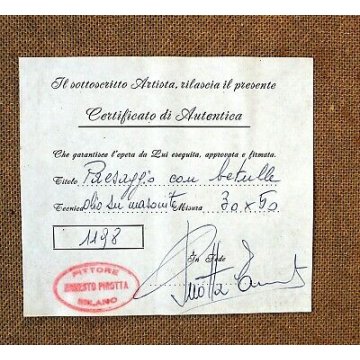 Il sottoscritto Artista, rilascia il presente
Certificato di Autentica
Che garantisce l'opera da Lui eseguita, approvata e firmata.
Titolo Paesaggio con betulle
Tecnica olio su masonite Misura 30x50
1198
In Fede
Pirotta Ernesto
PITTORE
ERNESTO PIROTTA
MILANO